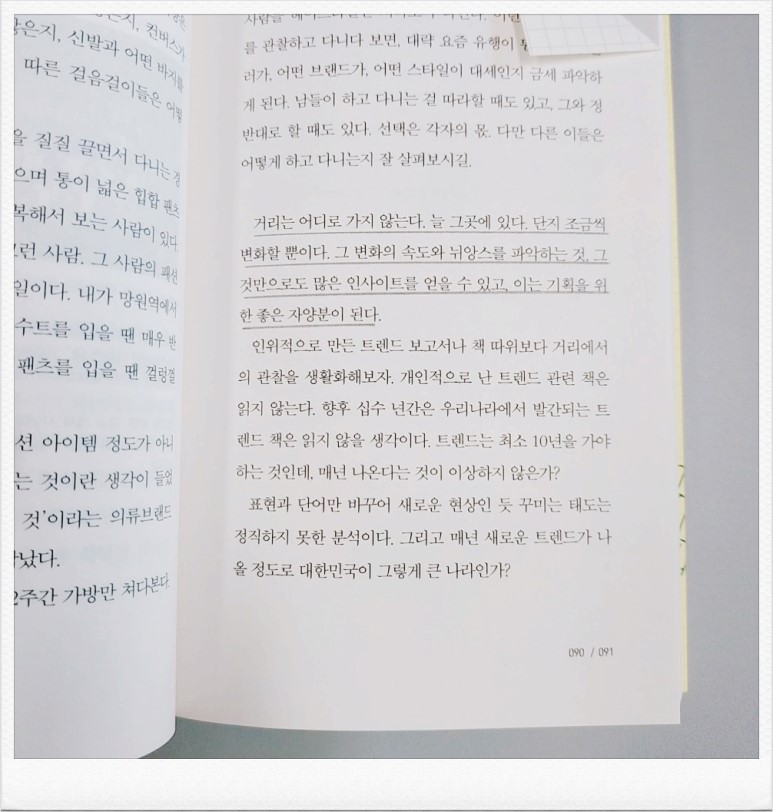 은지, 컨버스가
않은지, 신발과 어떤 바지를
따른 걸음걸이들은 어떨
을 질질 끌면서 다니는 정
으며 통이 넓은 힙합 팬츠
복해서 보는 사람이 있다.
그런 사람. 그 사람의 패션
일이다. 내가 망원역에서
수트를 입을 땐 매우 반
팬츠를 입을 땐 껄렁껄
션 아이템 정도가 아니
는 것이란 생각이 들었
것'이라는 의류브랜드
났다.
2주간 가방만 쳐다본다.
를 관찰하고 다니다 보면, 대략 요즘 유행이
러가, 어떤 브랜드가, 어떤 스타일이 대세인지 금세 파악하
게 된다. 남들이 하고 다니는 걸 따라할 때도 있고, 그와 정
반대로 할 때도 있다. 선택은 각자의 몫. 다만 다른 이들은
어떻게 하고 다니는지 잘 살펴보시길.
거리는 어디로 가지 않는다. 늘 그곳에 있다. 단지 조금씩
변화할 뿐이다. 그 변화의 속도와 뉘앙스를 파악하는 것, 그
것만으로도 많은 인사이트를 얻을 수 있고, 이는 기획을 위
한 좋은 자양분이 된다.
인위적으로 만든 트렌드 보고서나 책 따위보다 거리에서
의 관찰을 생활화해보자. 개인적으로 난 트렌드 관련 책은
읽지 않는다. 향후 십수 년간은 우리나라에서 발간되는 트
렌드 책은 읽지 않을 생각이다. 트렌드는 최소 10년을 가야
하는 것인데, 매년 나온다는 것이 이상하지 않은가?
표현과 단어만 바꾸어 새로운 현상인 듯 꾸미는 태도는
정직하지 못한 분석이다. 그리고 매년 새로운 트렌드가 나
올 정도로 대한민국이 그렇게 큰 나라인가?
090 / 091